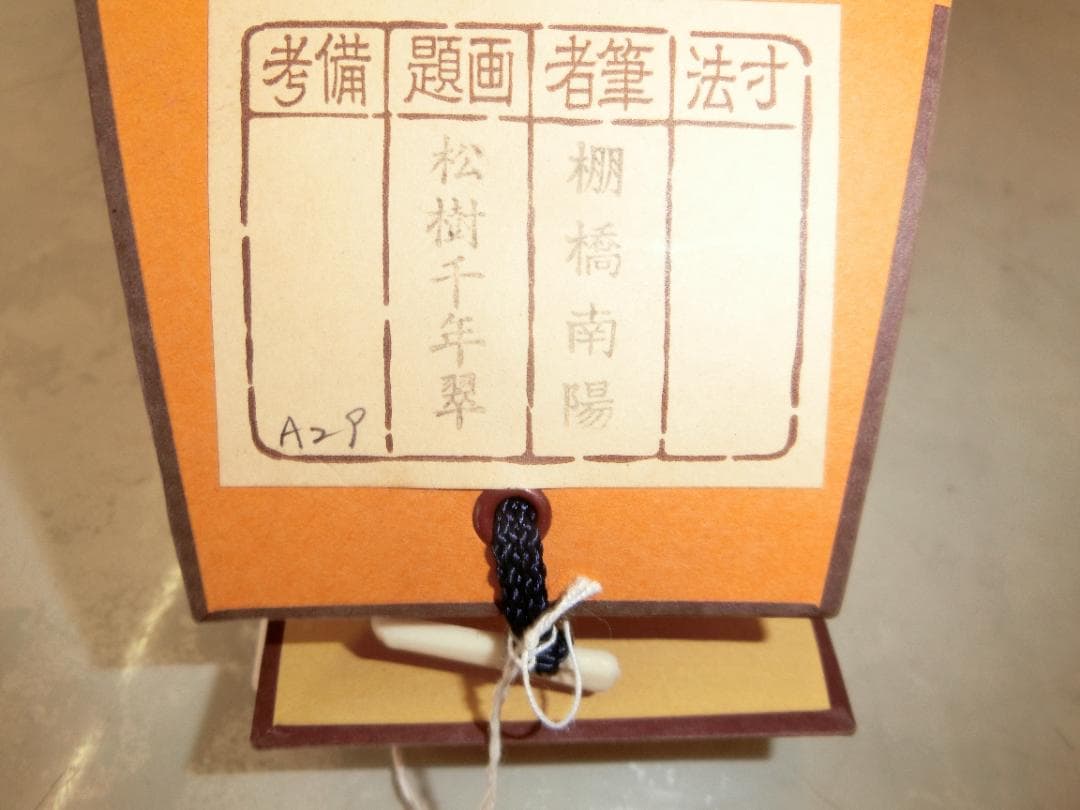 寸法
筆者
棚橋南陽
画題
松樹千年翠
備考
A29